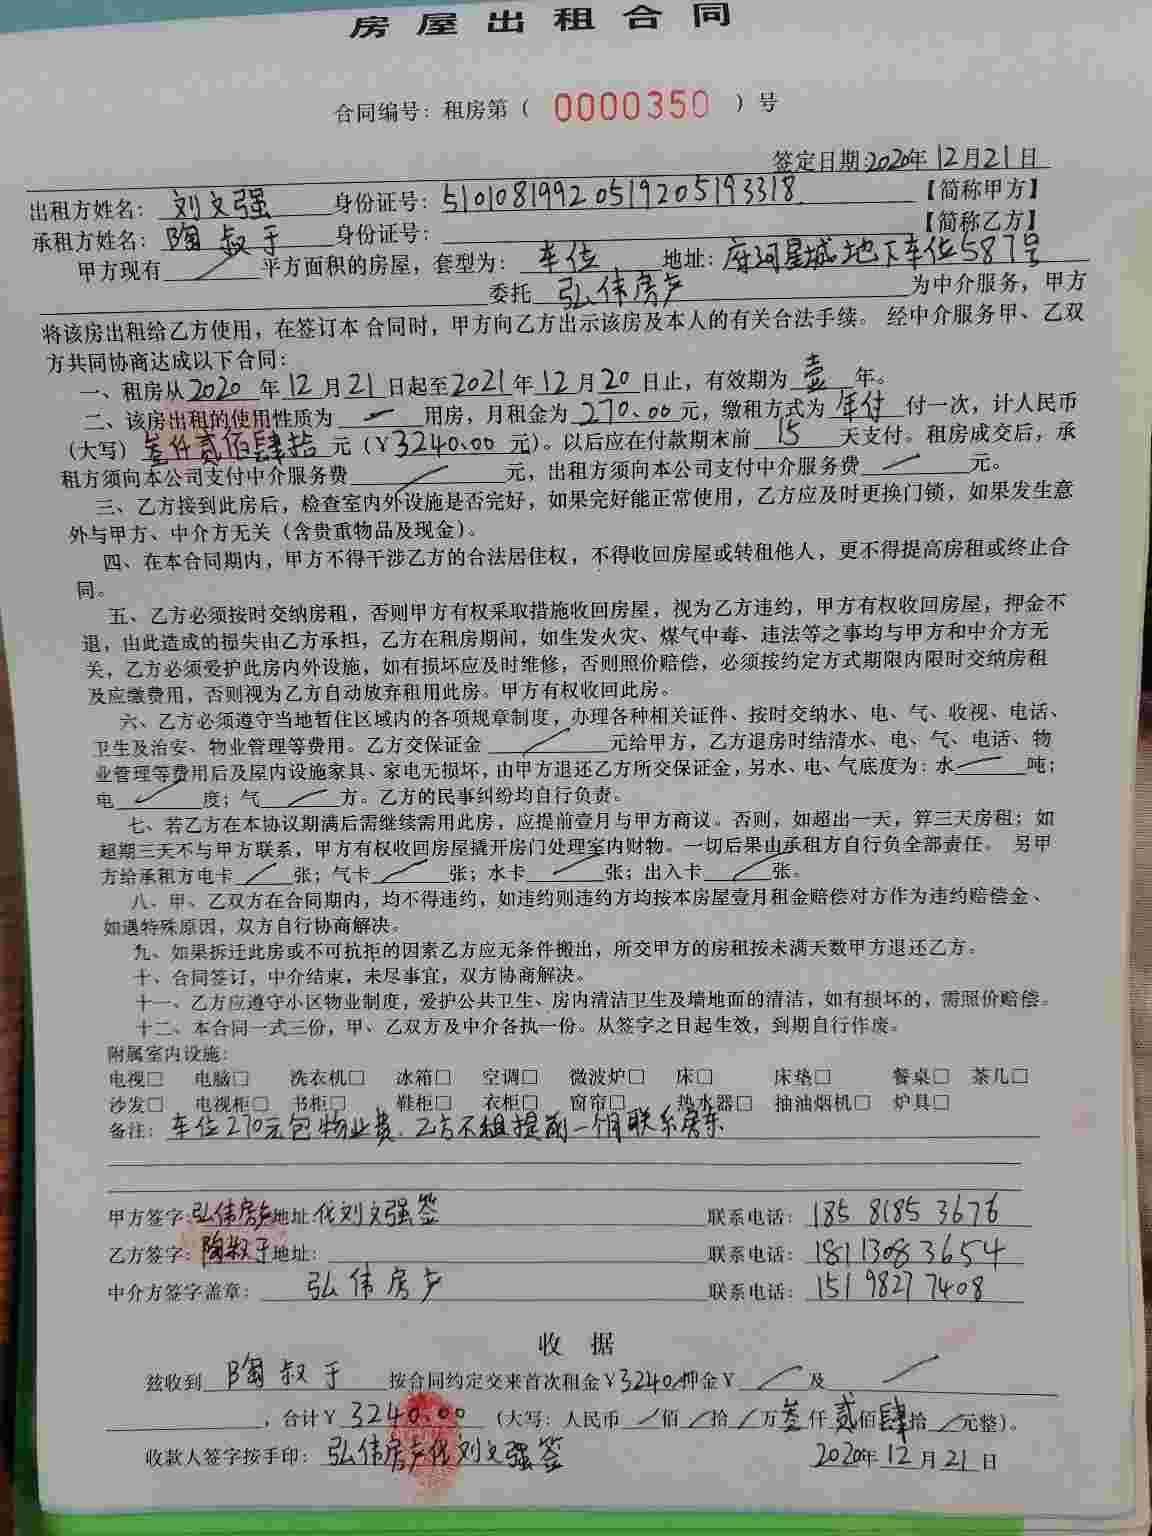 房屋出租合同
合同编号：租房第（ 0000350 ）号
签定日期:2020年12月21日
出租方姓名：刘文强 身份证号：51010819920519205193318 【简称甲方】
承租方姓名：陶叔于 身份证号： 【简称乙方】
甲方现有 平方面积的房屋，套型为：车位 地址：府河星城地下车位587号
委托 弘伟房产 为中介服务，甲方
将该房出租给乙方使用，在签订本合同时，甲方向乙方出示该房及本人的有关合法手续。经中介服务甲、乙双
方共同协商达成以下合同：
一、租房从2020年12月21日起至2021年12月20日止，有效期为壹年。
二、该房出租的使用性质为 一 用房，月租金为270.00元，缴租方式为年付付一次，计人民币
（大写）叁仟贰佰肆拾元（¥3240.00元）。以后应在付款期末前15天支付。租房成交后，承
租方须向本公司支付中介服务费 元，出租方须向本公司支付中介服务费 元。
三、乙方接到此房后，检查室内外设施是否完好，如果完好能正常使用，乙方应及时更换门锁，如果发生意
外与甲方、中介方无关（含贵重物品及现金）。
四、在本合同期内，甲方不得干涉乙方的合法居住权，不得收回房屋或转租他人，更不得提高房租或终止合
同。
五、乙方必须按时交纳房租，否则甲方有权采取措施收回房屋，视为乙方违约，甲方有权收回房屋，押金不
退，由此造成的损失由乙方承担，乙方在租房期间，如生发火灾、煤气中毒、违法等之事均与甲方和中介方无
关，乙方必须爱护此房内外设施，如有损坏应及时维修，否则照价赔偿，必须按约定方式期限内限时交纳房租
及应缴费用，否则视为乙方自动放弃租用此房。甲方有权收回此房。
六、乙方必须遵守当地暂住区域内的各项规章制度，办理各种相关证件、按时交纳水、电、气、收视、电话、
卫生及治安、物业管理等费用。乙方交保证金 元给甲方，乙方退房时结清水、电、气、电话、物
业管理等费用后及屋内设施家具、家电无损坏，由甲方退还乙方所交保证金，另水、电、气底度为：水 吨；
电 度；气 方。乙方的民事纠纷均自行负责。
七、若乙方在本协议期满后需继续需用此房，应提前壹月与甲方商议。否则，如超出一天，算三天房租；如
超期三天不与甲方联系，甲方有权收回房屋撬开房门处理室内财物。一切后果由承租方自行负全部责任。另甲
方给承租方电卡 张；气卡 张；水卡 张；出入卡 张。
八、甲、乙双方在合同期内，均不得违约，如违约则违约方均按本房屋壹月租金赔偿对方作为违约赔偿金、
如遇特殊原因，双方自行协商解决。
九、如果拆迁此房或不可抗拒的因素乙方应无条件搬出，所交甲方的房租按未满天数甲方退还乙方。
十、合同签订，中介结束，未尽事宜，双方协商解决。
十一、乙方应遵守小区物业制度，爱护公共卫生、房内清洁卫生及墙地面的清洁，如有损坏的，需照价赔偿。
十二、本合同一式三份，甲、乙双方及中介各执一份。从签字之日起生效，到期自行作废。
附属室内设施：
电视□ 电脑□ 洗衣机□ 冰箱□ 空调□ 微波炉□ 床□ 床垫□ 餐桌□ 茶几□
沙发□ 电视柜□ 书柜□ 鞋柜□ 衣柜□ 窗帘□ 热水器□ 抽油烟机□ 炉具□
备注：车位270元包物业费.乙方不租提前一个月联系房东
甲方签字：弘伟房产地址：代刘文强签 联系电话：185 8185 3676
乙方签字：陶叔于地址： 联系电话：18113083654
中介方签字盖章：弘伟房产 联系电话：151 9827 7408
收据
兹收到 陶叔于 按合同约定交来首次租金¥3240押金¥ 及
，合计¥3240.00（大写：人民币 佰 拾 万叁仟贰佰肆拾 元整）。
收款人签字按手印：弘伟房产代刘文强签 2020年12月21日